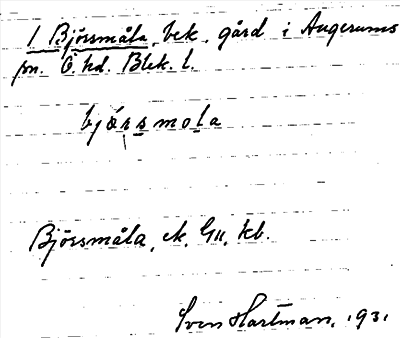 1 Björsmåla, bek. gård i Augerums
sn. Ö. hd. Blek. l.
bjørsmola
Björsmåla, ek. Gu. kb.
Sven Hartman. 1931